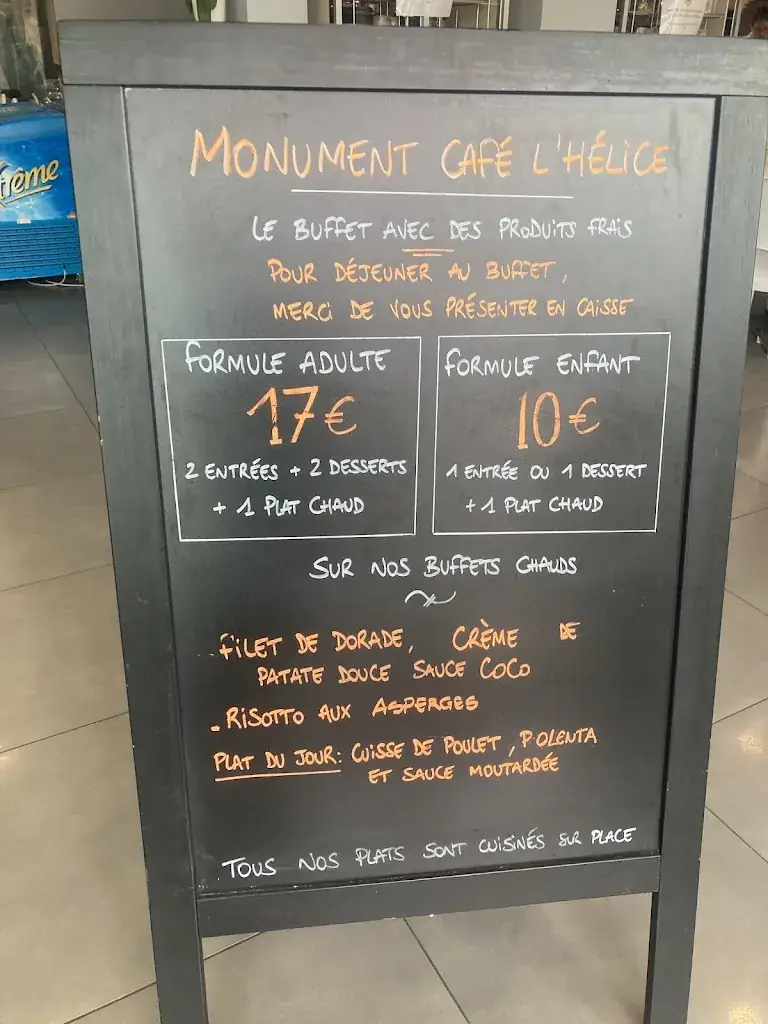 MONUMENT CAFÉ L'HÉLICE
LE BUFFET AVEC DES PRODUITS FRAIS
POUR DÉJEUNER AU BUFFET,
MERCI DE VOUS PRÉSENTER EN CAISSE
FORMULE ADULTE
17€
2 ENTRÉES + 2 DESSERTS
+ 1 PLAT CHAUD
FORMULE ENFANT
10€
1 ENTRÉE OU 1 DESSERT
+ 1 PLAT CHAUD
SUR NOS BUFFETS CHAUDS
- FILET DE DORADE, CRÈME DE
PATATE DOUCE SAUCE COCO
- RISOTTO AUX ASPERGES
PLAT DU JOUR: CUISSE DE POULET, POLENTA
ET SAUCE MOUTARDÉE
TOUS NOS PLATS SONT CUISINÉS SUR PLACE
trême